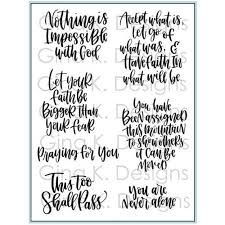 Nothing is
Impossible
with God
Let your
Faith Be
Bigger than
Your fear
Praying for You
This too
Shall Pass
Accept what is,
Let go of
what was, &
Have Faith In
what will be.
You have
Been assigned
this mountain
to show others
it Can Be
Moved
You are
Never alone
Gina K. Designs